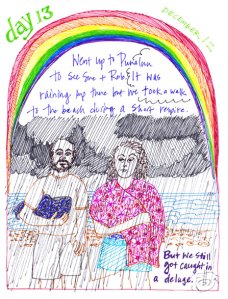 day 13
DECEMBER 1st
Went up to Punaluu
to see Sue + Rob. It was
raining any time but we took a walk
to the beach during a short respite.
But we still
got caught in
a deluge.